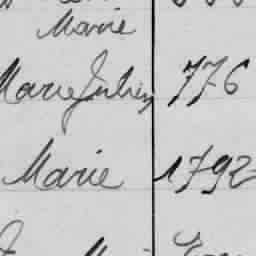 Marie
Marie Julien 776
Marie 1792